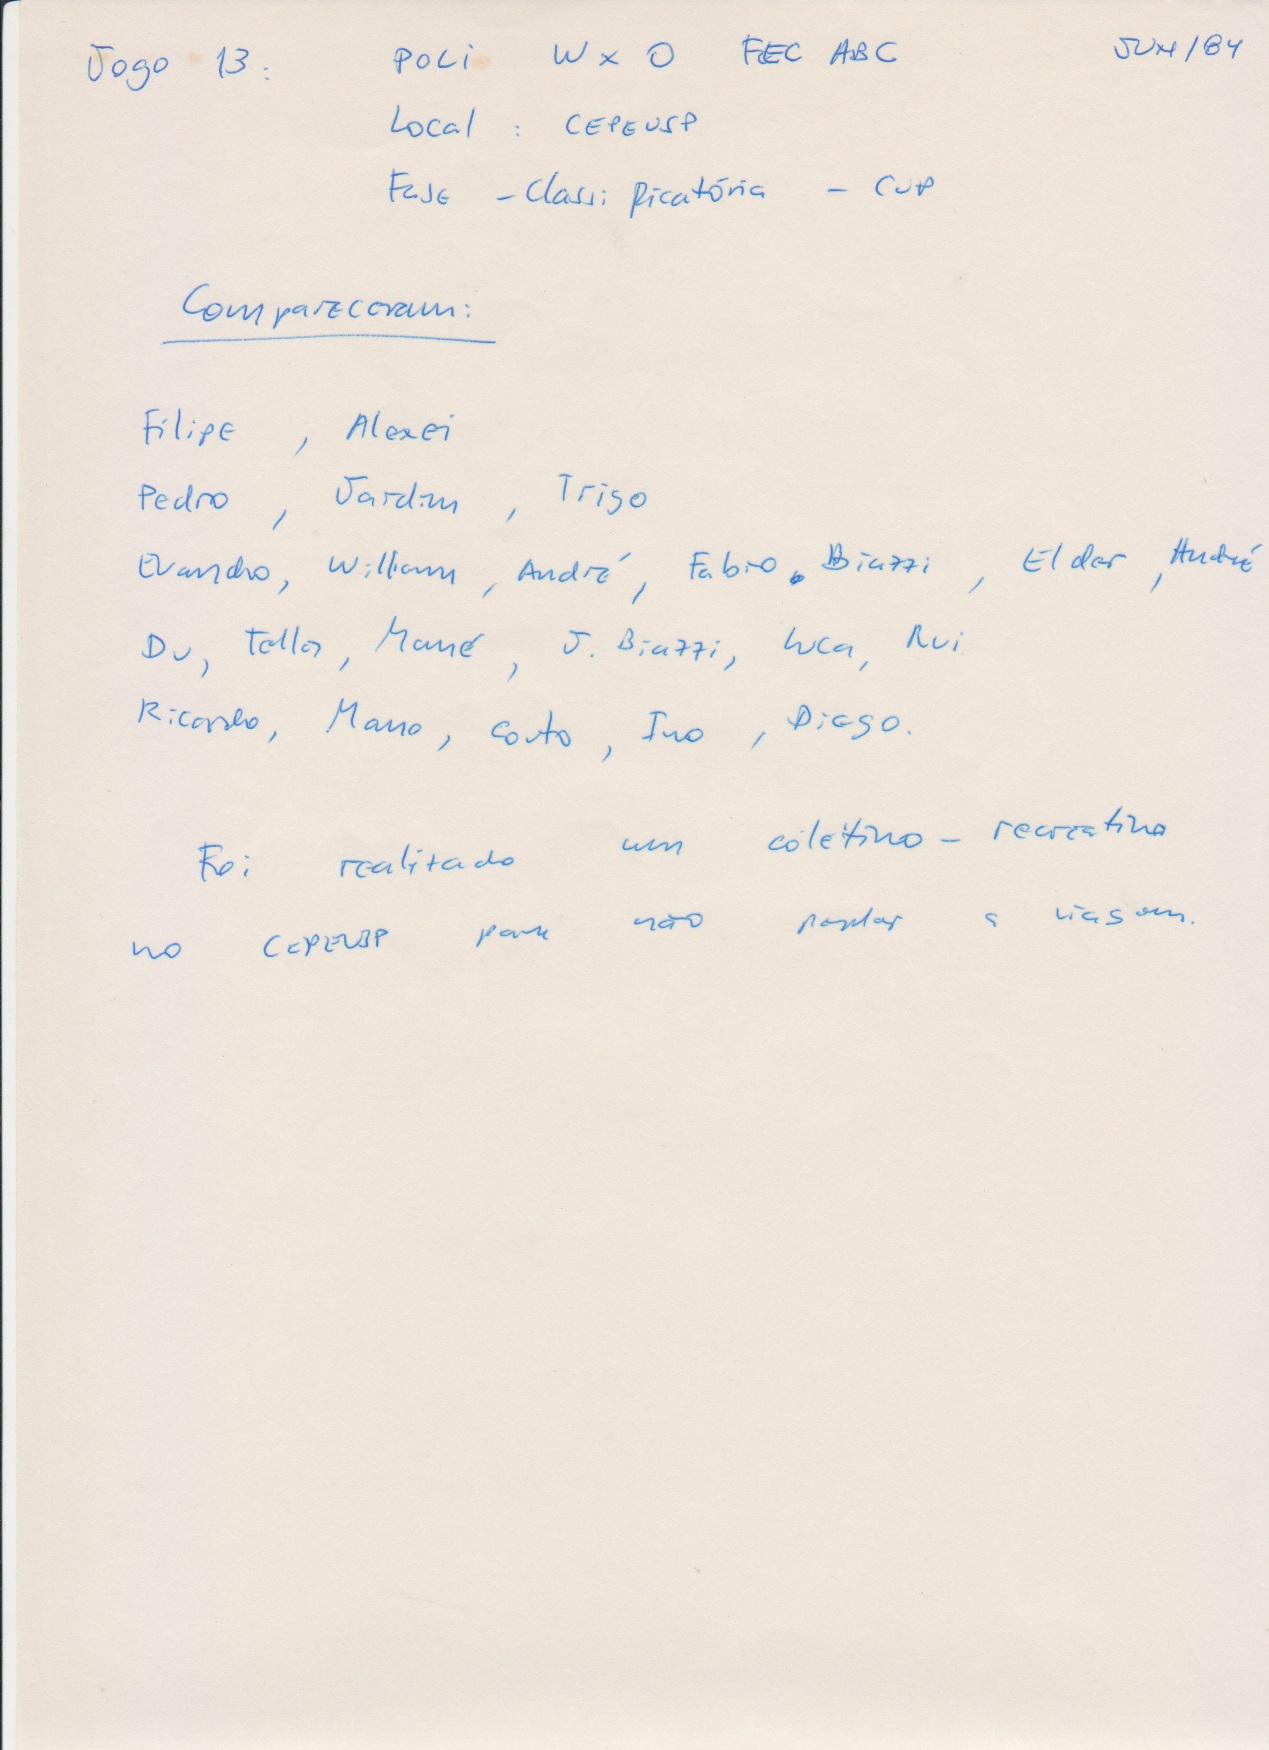 Jogo 13: POLI W x O FEC ABC JUN/84
Local : CEPEUSP
Fase - Classificatória - CUP
Compareceram:
Filipe , Alexei
Pedro , Jardim , Trigo
Evandro, William , André , Fabio . Biazzi , Elder , André
Du, Mané , J. Biazzi, Luca, Rui
Ricardo, Mano , Couto , Ivo , Diego.
Foi realizado um coletivo - recreativo
no CEPEUSP para não perder a viagem.